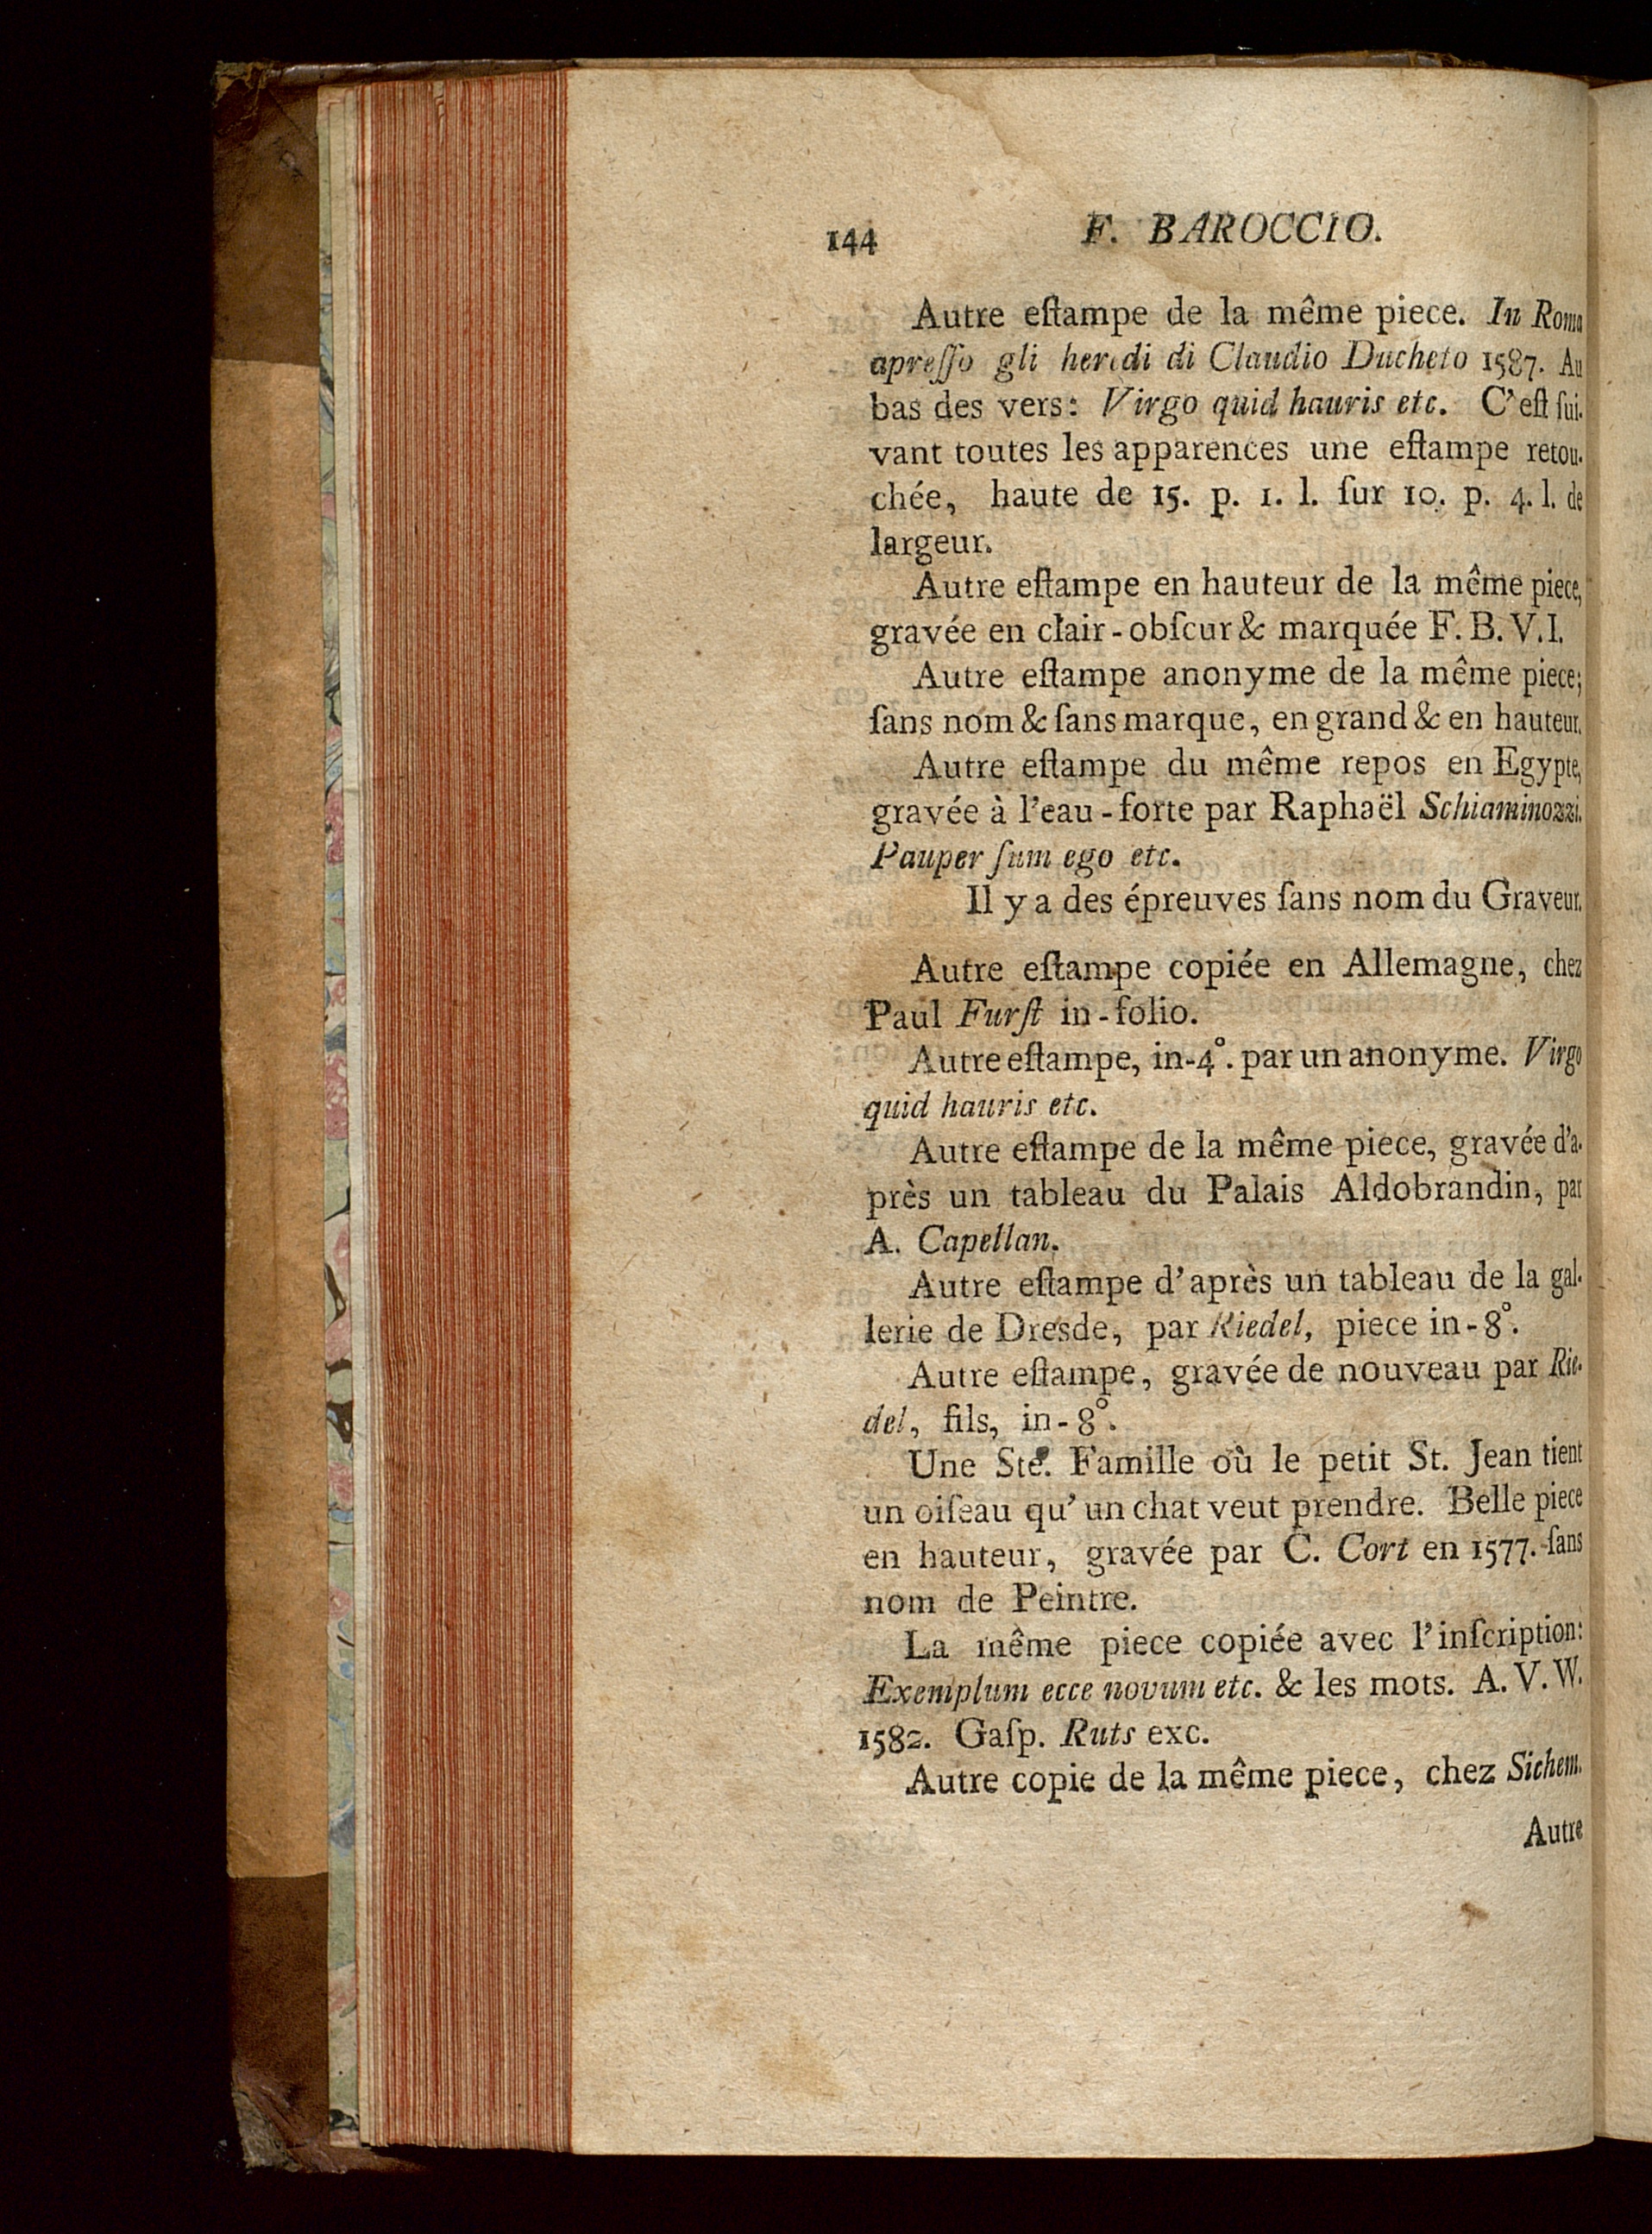 144 F. BAROCCIO.
Autre eſtampe de la même piece. In Roma
apreſſo gli heredi di Claudio Ducheto 1587. Au
bas des vers: Virgo quid hauris etc. C'eſt ſui-
vant toutes les apparences une eſtampe retou-
chée, haute de 15. p. 1. l. ſur 10. p. 4. l. de
largeur.
Autre eſtampe en hauteur de la même piece,
gravée en clair-obſcur & marquée F. B. V. I.
Autre eſtampe anonyme de la même piece;
ſans nom & ſans marque, en grand & en hauteur.
Autre eſtampe du même repos en Egypte,
gravée à l'eau-forte par Raphaël Schiaminozzi.
Pauper ſum ego etc.
Il y a des épreuves ſans nom du Graveur.
Autre eſtampe copiée en Allemagne, chez
Paul Furſt in-folio.
Autre eſtampe, in-4°. par un anonyme. Virgo
quid hauris etc.
Autre eſtampe de la même piece, gravée d'a-
près un tableau du Palais Aldobrandin, par
A. Capellan.
Autre eſtampe d'après un tableau de la gal-
lerie de Dresde, par Riedel, piece in-8°.
Autre eſtampe, gravée de nouveau par Rie-
del, fils, in-8°.
Une Ste. Famille où le petit St. Jean tient
un oiſeau qu'un chat veut prendre. Belle piece
en hauteur, gravée par C. Cort en 1577. ſans
nom de Peintre.
La même piece copiée avec l'inſcription:
Exemplum ecce novum etc. & les mots. A. V. W.
1582. Gaſp. Ruts exc.
Autre copie de la même piece, chez Sichem.
Autre